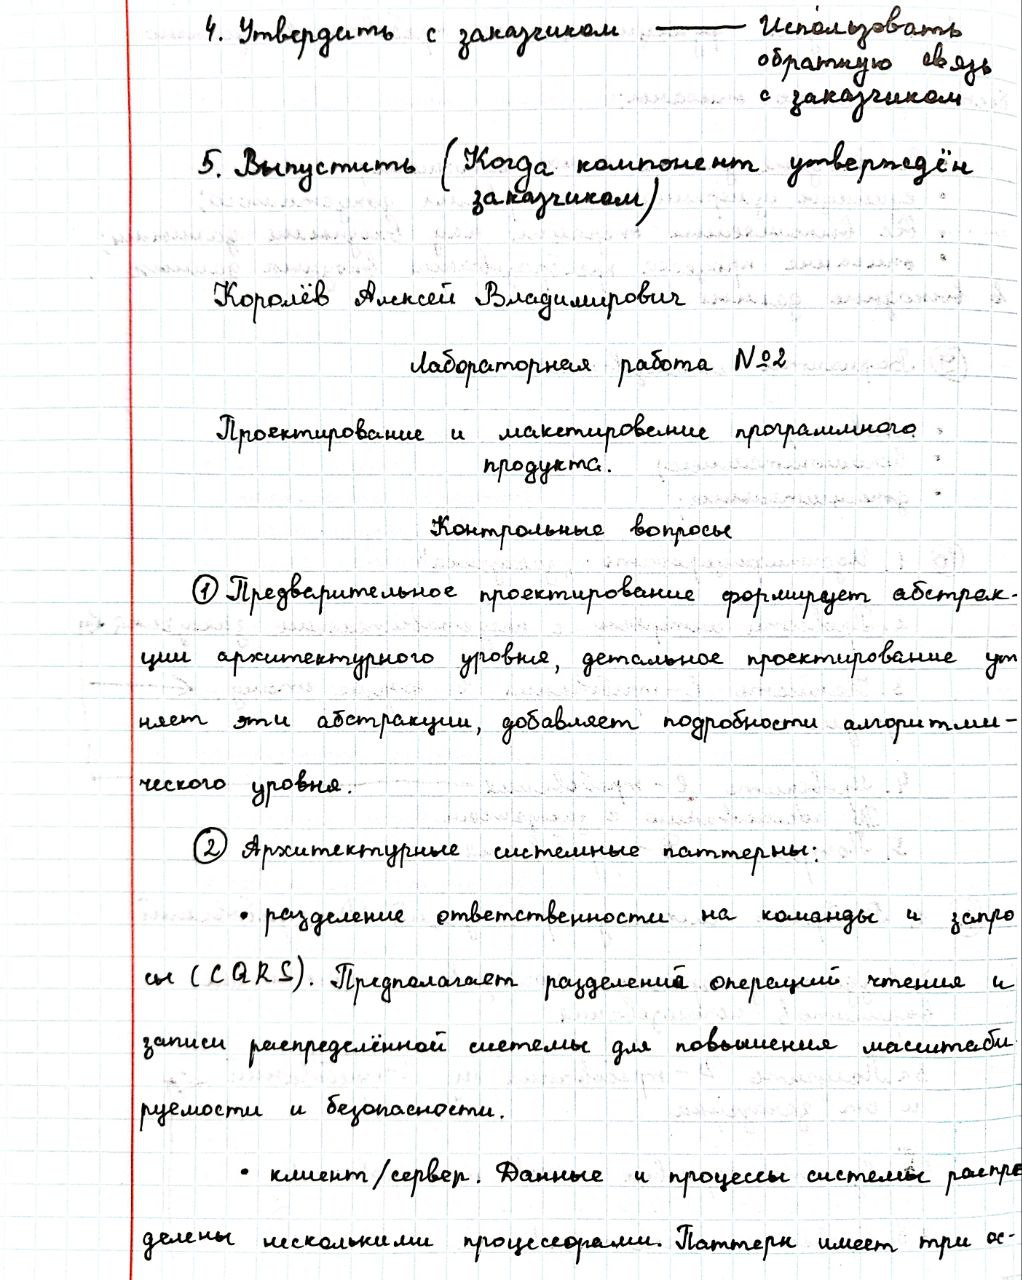 4. Утвердить с заказчиком — Использовать
обратную связь
с заказчиком
5. Выпустить (Когда компонент утверждён
заказчиком)
Королёв Алексей Владимирович
Лабораторная работа №2
Проектирование и макетирование программного
продукта.
Контрольные вопросы
① Предварительное проектирование формирует абстрак-
ции архитектурного уровня, детальное проектирование ут
няет эти абстракции, добавляет подробности алгоритми-
ческого уровня.
② Архитектурные системные паттерны:
• разделение ответственности на команды и запро
сы (CQRS). Предполагает разделений операций чтения и
записи распределённой системы для повышения масштаби
руемости и безопасности.
• клиент/сервер. Данные и процессы системы распре
делены несколькими процессорами. Паттерн имеет три ос-